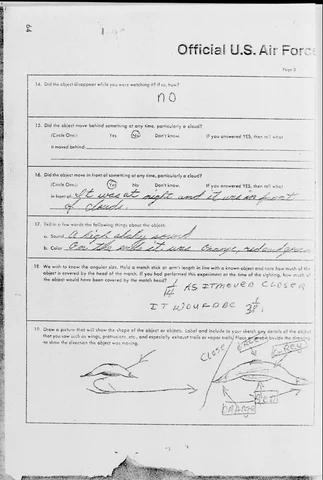 64
Official U.S. Air Force
Page 3
14. Did the object disappear while you were watching it? If so, how?
NO
15. Did the object move behind something at any time, particularly a cloud?
(Circle One): Yes No Don't know. If you answered YES, then tell what
it moved behind:
16. Did the object move in front of something at any time, particularly a cloud?
(Circle One): Yes No Don't know. If you answered YES, then tell what
in front of: It was at night and it was in front
of clouds.
17. Tell in a few words the following things about the object:
a. Sound A high sound
b. Color it was orange, red and green
18. We wish to know the angular size. Hold a match stick at arm's length in line with a known object and note how much of the
object is covered by the head of the match. If you had performed this experiment at the time of the sighting, how much of
the object would have been covered by the match head?
1/14 AS IT MOVED CLOSER
IT WOULD BE
19. Draw a picture that will show the shape of the object or objects. Label and include in your sketch any details of the object
that you saw such as wings, protrusions, etc., and especially exhaust trails or vapor trails. Place an arrow beside the drawing
to show the direction the object was moving.
CLOSE
ORANGE
RED